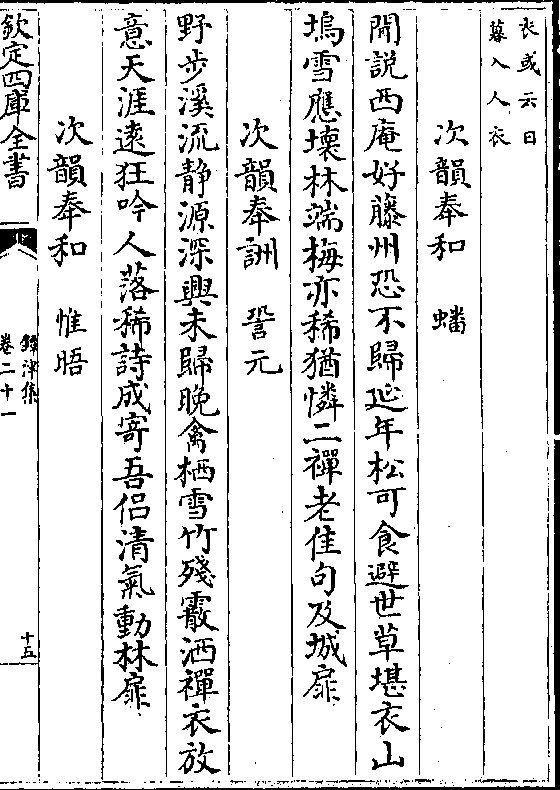 衣或云日
暮入人衣
次韻奉和　蟠
聞說西庵好藤州恐不歸延年松可食避世草堪衣山
塢雪應壞林端梅亦稀猶憐二禪老佳句及城扉
次韻奉詶　晉元
野步溪流静源深興未歸晚禽栖雪竹殘霰洒禪衣放
意天涯逺狂吟人落稀詩成寄吾侣清氣動林扉
次韻奉和　惟晤
欽定四庫全書
鐔津集
卷二十一
十五